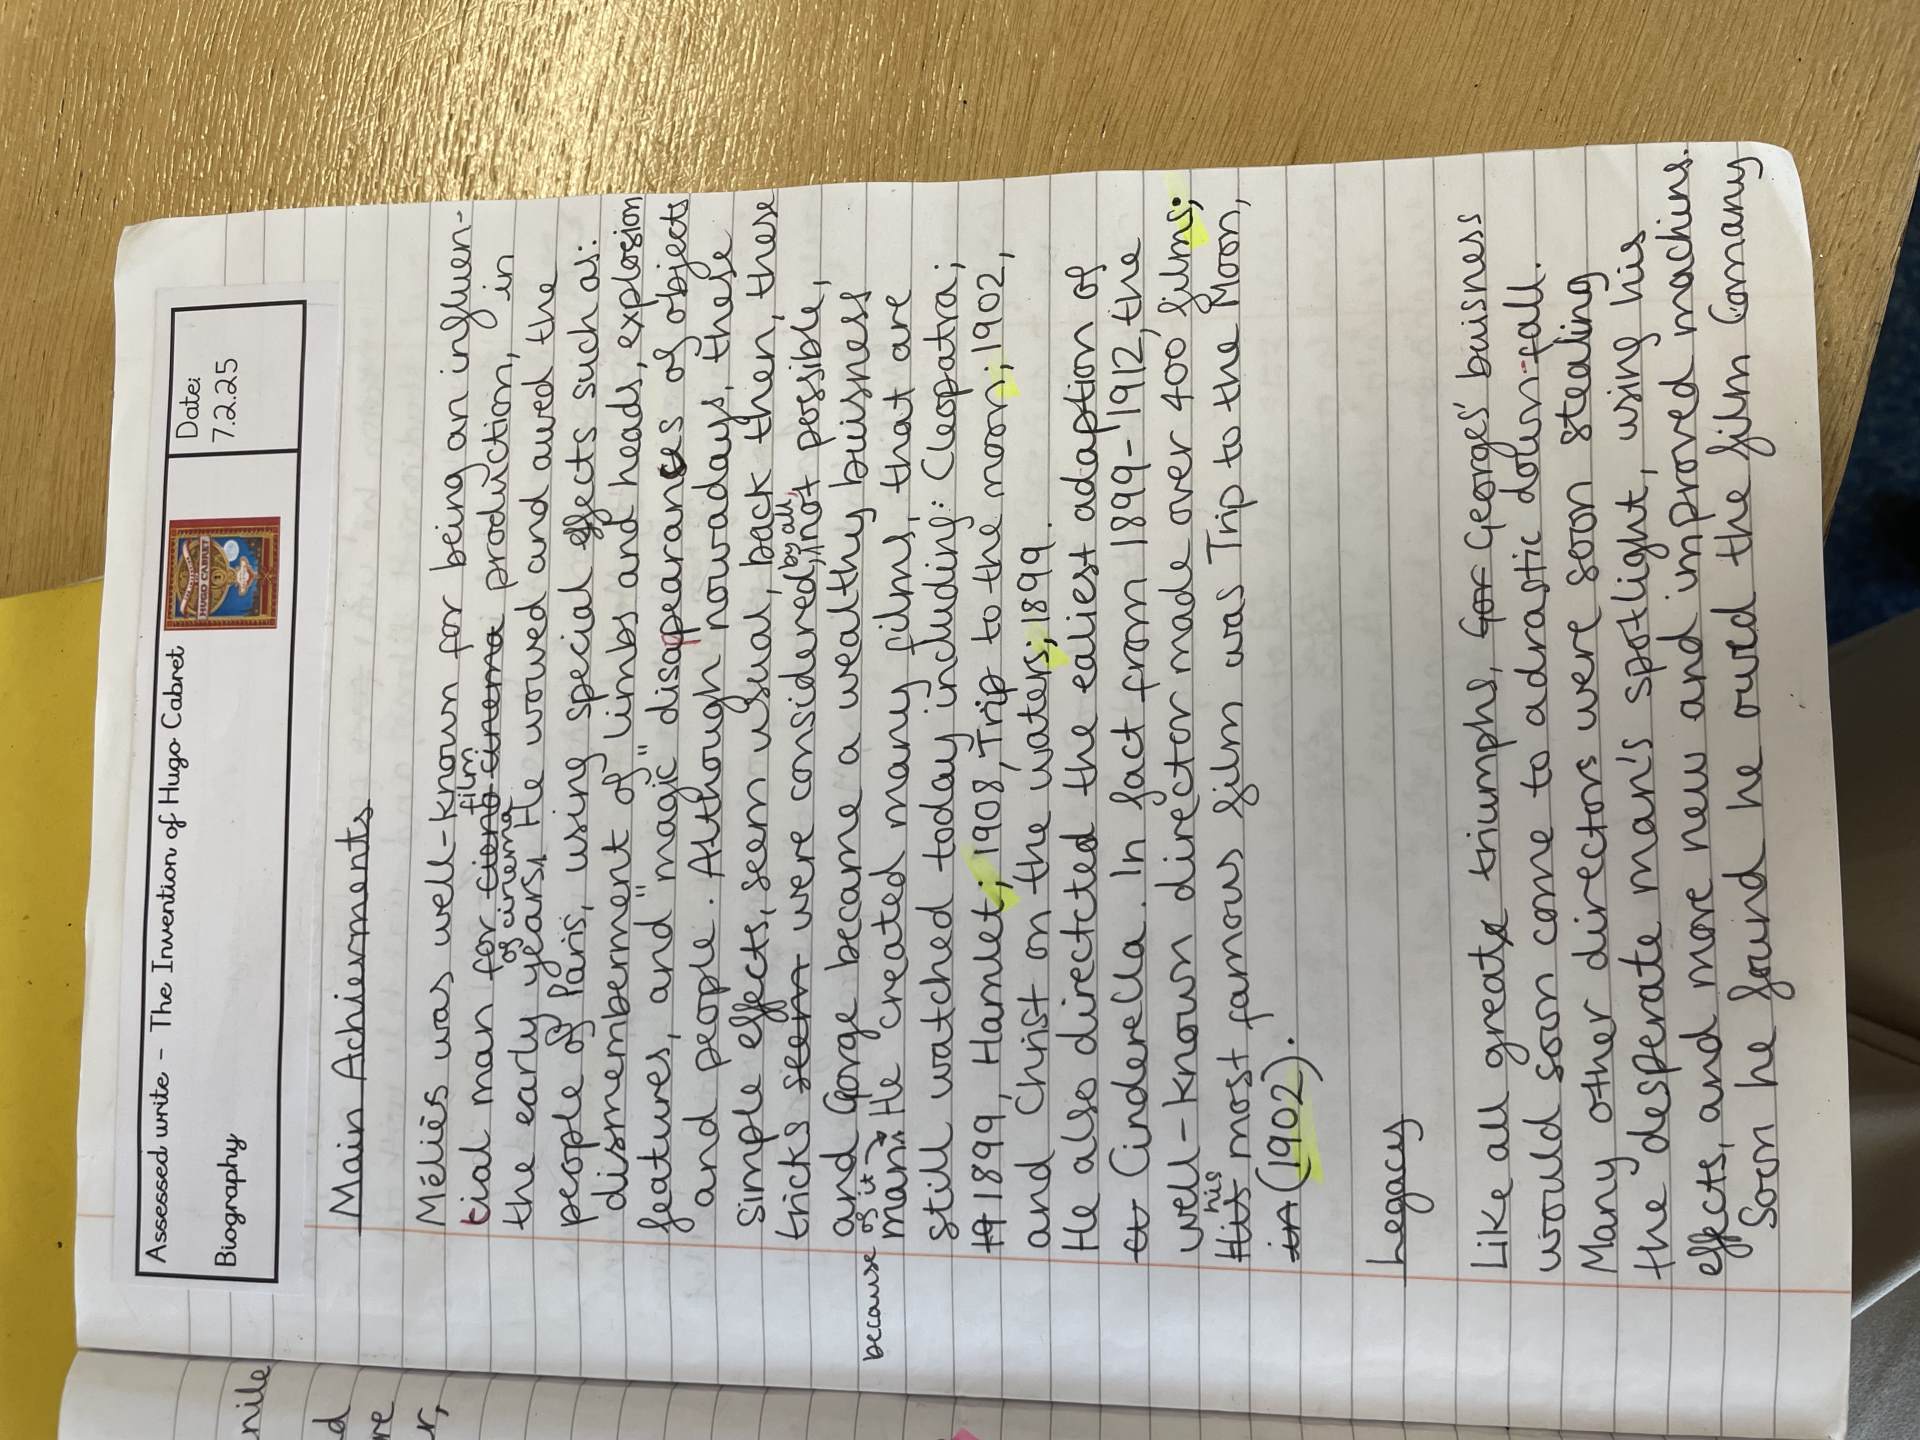 Assessed write - The Invention of Hugo Cabret
Date:
7.2.25
Biography
HUGO CABRET
Main Achievements
Méliès was well-known for being an influen-
tial man for film production, in
of cinema
the early years. He wowed and awed the
people of Paris, using special effects such as:
dismemberment of limbs and heads, explosion
features, and "magic" disappearances of objects
and people. Although nowadays, these
simple effects, seem usual, back then, these
tricks seem were considered, by all, not possible,
and Gorge became a wealthy buisness
because of it
man. He created many films, that are
still watched today including: Cleopatra;
1899, Hamlet; 1908, Trip to the moon; 1902,
and Christ on the waters; 1899.
He also directcted the ealiest adaption of
Cinderella. In fact from 1899-1912, the
well-known director made over 400 films;
his
His most famous film was Trip to the Moon,
in (1902).
Legacy
Like all great triumphs, for George's' buisness
would soon come to adrastic down-fall.
Many other directors were soon stealing
the desperate man's spotlight, using his
effects, and more new and improved machins.
Soon he found he owed the film Comany
nile
d
re
r,